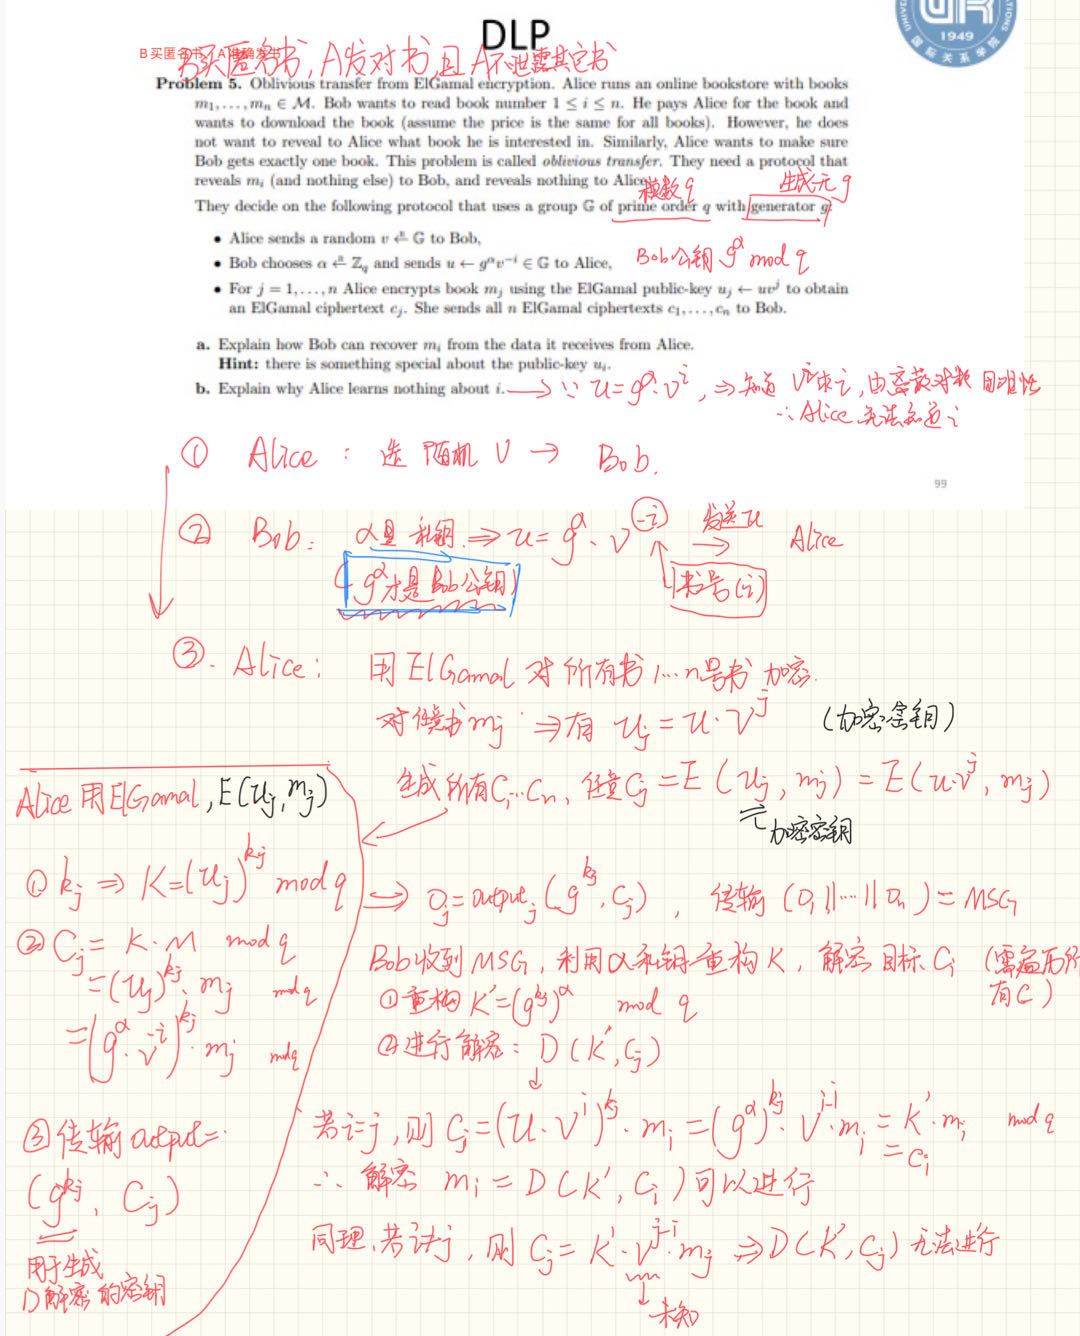 DLP
1949
国际关系学院
B买匿名书,A
书买匿名书,A发对书,且A不泄露其它书
Problem 5. Oblivious transfer from ElGamal encryption. Alice runs an online bookstore with books
m₁, . . . , mₙ ∈ M. Bob wants to read book number 1 ≤ i ≤ n. He pays Alice for the book and
wants to download the book (assume the price is the same for all books). However, he does
not want to reveal to Alice what book he is interested in. Similarly, Alice wants to make sure
Bob gets exactly one book. This problem is called oblivious transfer. They need a protocol that
reveals mᵢ (and nothing else) to Bob, and reveals nothing to Alice.
模数q 生成元g
They decide on the following protocol that uses a group 𝔾 of prime order q with generator g:
• Alice sends a random v ←ᴿ 𝔾 to Bob,
• Bob chooses α ←ᴿ ℤq and sends u ← g^α v^{-i} ∈ 𝔾 to Alice,
Bob公钥 g^α mod q
• For j = 1, . . . , n Alice encrypts book mⱼ using the ElGamal public-key uⱼ ← uvʲ to obtain
an ElGamal ciphertext cⱼ. She sends all n ElGamal ciphertexts c₁, . . . , cₙ to Bob.
a. Explain how Bob can recover mᵢ from the data it receives from Alice.
Hint: there is something special about the public-key uᵢ.
b. Explain why Alice learns nothing about i. → ∵ u = g^α · v^i, ⇒ 知道 v^i求i, 由离散对数困难性
∴ Alice 无法知道 i
① Alice : 选 随机 v → Bob.
99
② Bob: α是 私钥 ⇒ u = g^α · v^{-i} 发送u → Alice
( g^α才是Bob公钥) 书号(i)
③. Alice: 用 ElGamal 对所有书 1...n号书 加密.
对任意书mj ⇒ 有 uj = u · v^j (加密密钥)
生成所有C1...Cn, 任意Cj = E ( uj , mj ) = E ( u·v^j , mj )
⇒ 加密密钥
Alice 用 ElGamal, E(uj, mj)
① kj ⇒ K=(uj)^{kj} mod q
② Cj = K · M mod q
= (uj)^{kj} · mj mod q
= (g^α · v^{-i})^{kj} · mj mod q
③ 传输 output =
(g^{kj}, Cj)
用于生成
D解密的密钥
⇒ Oj = outputj (g^{kj}, Cj) , 传输 (O1 ||···|| On ) = MSG
Bob收到 MSG, 利用 α 私钥 重构 K, 解密 目标 Ci (需遍历所
有C)
① 重构 K' = (g^{kj})^α mod q
② 进行解密: D ( K', Cj )
若i=j, 则 Cj = (u · v^i)^{kj} · mi = (g^α)^{kj} · v^{i-i} · mi = K' · mi mod q
= Ci
∴ 解密 mi = D ( K', Ci ) 可以进行
同理, 若i≠j, 则 Cj = K' · v^{j-i} · mj ⇒ D ( K', Cj ) 无法进行
未知